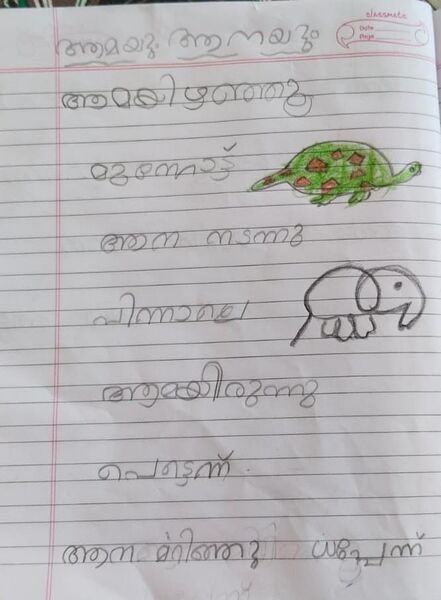 classmate
Date
Page
ആമയും ആനയും
ആമയിഴഞ്ഞു
മുന്നോട്ട്
ആന നടന്നു
പിന്നാലെ
ആമയിരുന്നു
പെട്ടെന്ന്.
ആന മറിഞ്ഞു